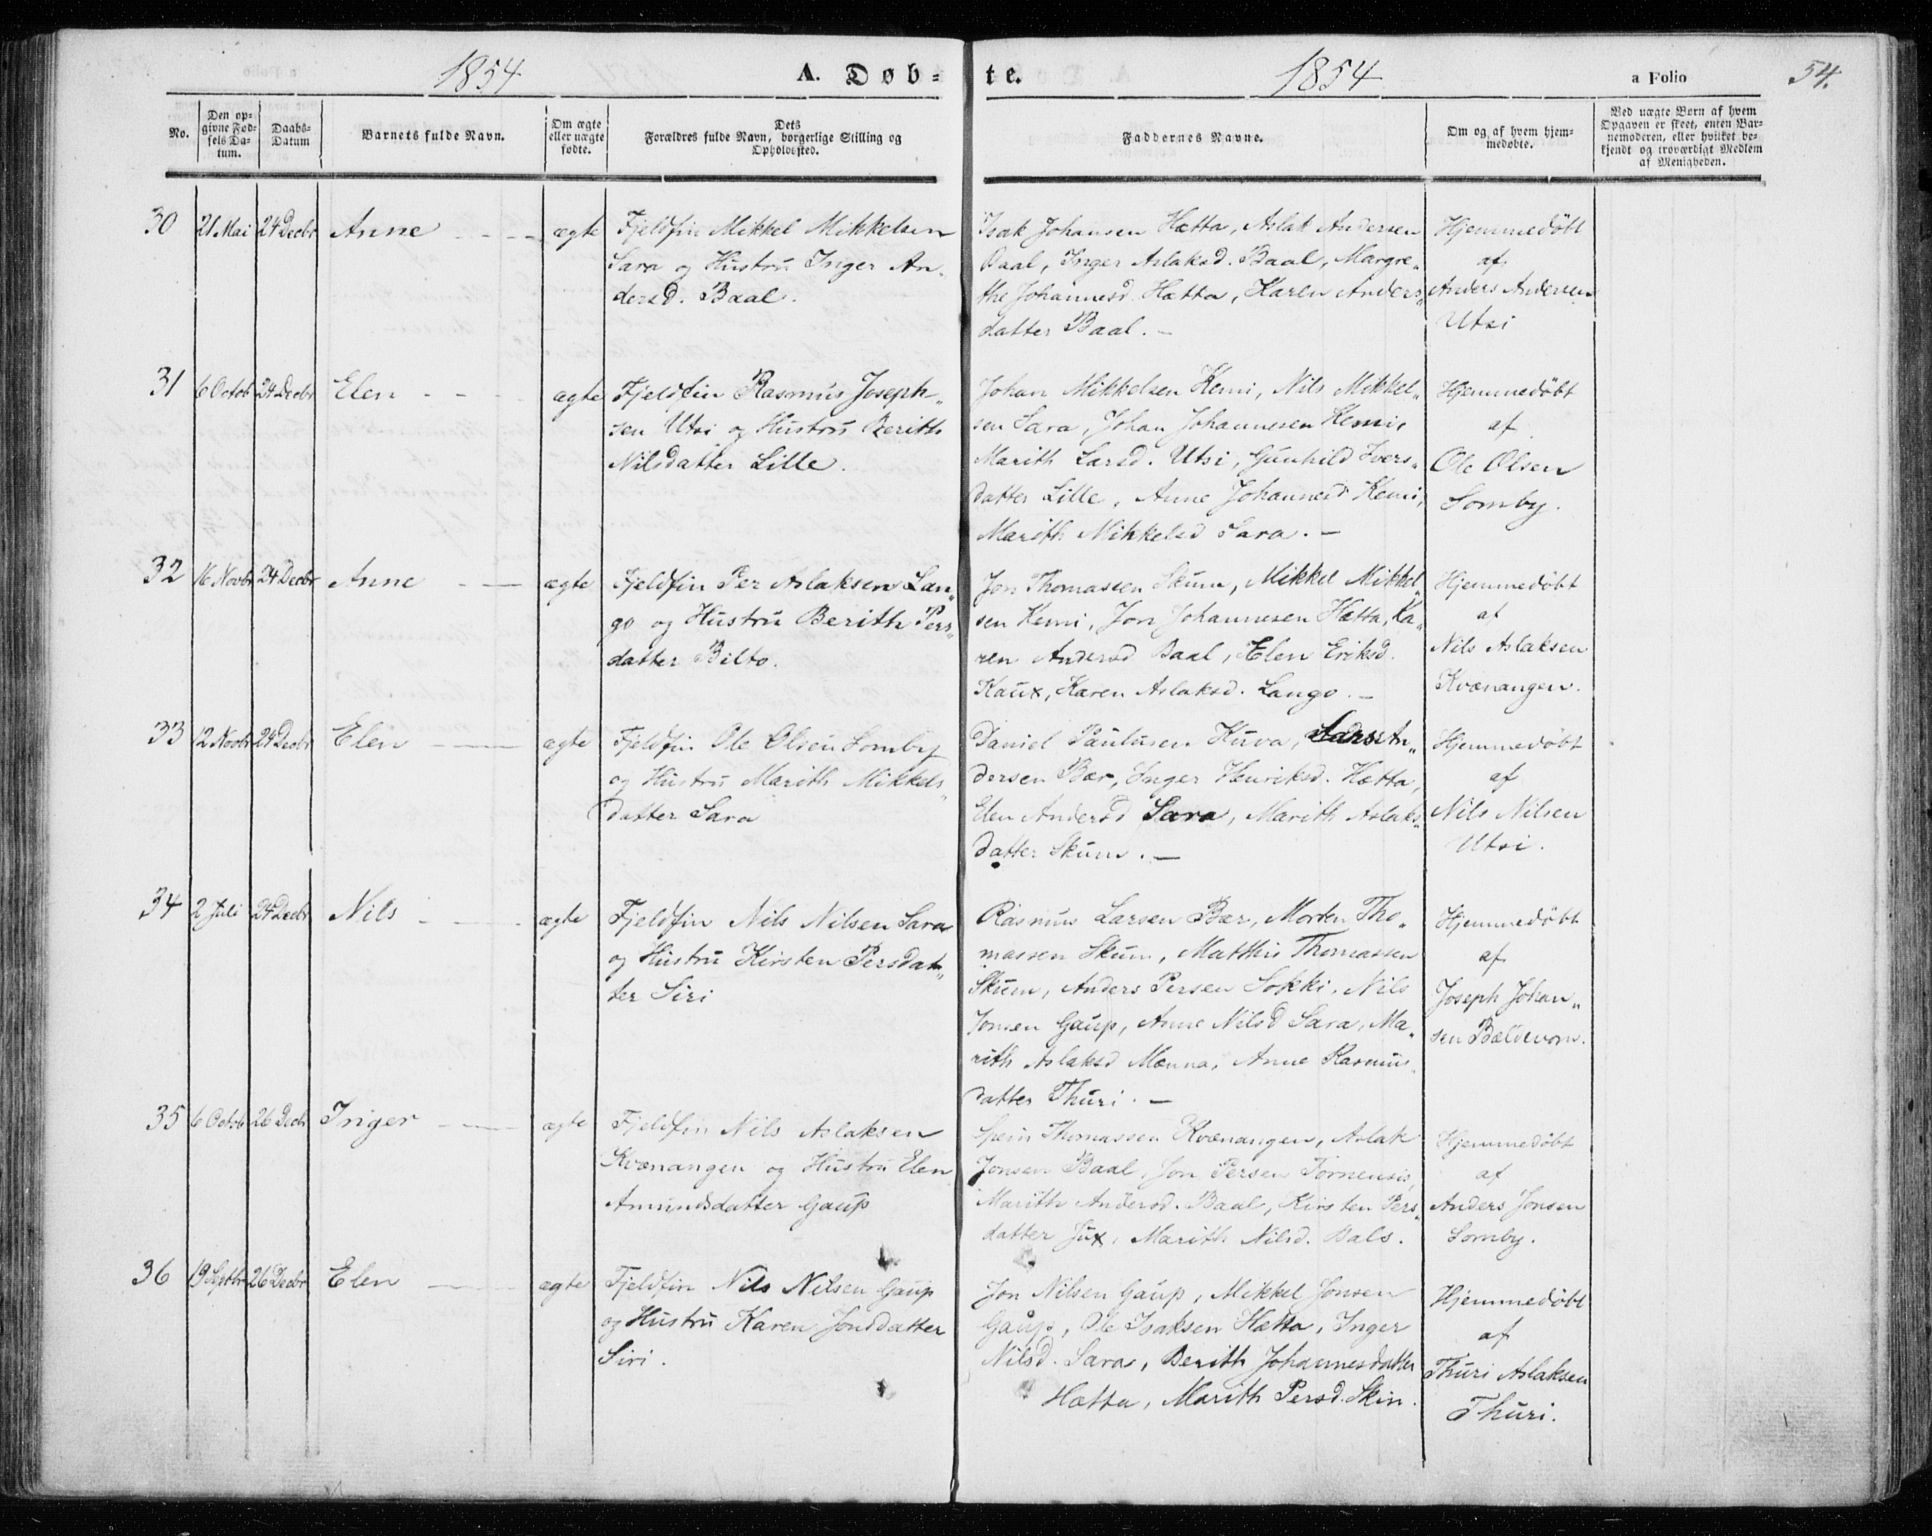 1854 A. Døb- te. 1854 a Folio 54.
No. Den op-givne Fød-sels Da-tum. Daabs-Datum Barnets fulde Navn. Om ægte eller uægte fødte. Dets Forældres fulde Navn, borgerlige Stilling og Opholdssted. Faddernes Navne. Om og af hvem hjem-medøbte. Ved uægte Børn af hvem Opgaven er skeet, enten Bar-nemoderen, eller hvilket be-kjendt og troværdigt Medlem af Menigheden.
30 21 Mai 24 Decbr Anne ægte
Fjeldfin Mikkel Mikkelsen
Sara og Hustru Inger An-
dersd. Baal.
Isak Johansen Hætta, Aslak Andersen
Baal, Inger Aslaksd. Baal, Margre-
the Johannesd. Hætta, Karen Anders-
datter Baal. —
Hjemmedøbt
af
Anders Andersen
Utsi
31 6 Octob 24 Decbr Elen ægte
Fjeldfin Rasmus Joseph-
sen Utsi og Hustru Berith
Nilsdatter Lille.
Johan Mikkelsen Kemi, Nils Mikkel-
sen Sara, Johan Johannesen Kemi,
Marith Larsd. Utsi, Gunhild Ivers-
datter Lille, Anne Johannesd Kemi,
Marith Mikkelsd Sara. —
Hjemmedøbt
af
Ole Olsen
Somby.
32 16 Novbr 24 Decbr Anne ægte
Fjeldfin Per Aslaksen Lan-
go og Hustru Berith Pers-
datter Bilto.
Jon Thomassen Skum, Mikkel Mikkel-
sen Kemi, Jon Johannesen Hætta, Ka-
ren Andersd Baal, Elen Eriksd.
Kaux, Karen Aslaksd. Lango. —
Hjemmedøbt
af
Nils Aslaksen
Kvænangen.
33 12 Novbr 24 Decbr Elen ægte
Fjeldfin Ole Olsen Somby
og Hustru Marith Mikkels-
datter Sara
Daniel Paulusen Kuva, Lars An-
dersen Bær, Inger Henriksd. Hætta,
Elen Andersd Sara, Marith Aslaks-
datter Skum. —
Hjemmedøbt
af
Nils Nilsen
Utsi.
34 2 Juli 24 Decbr Nils ægte
Fjeldfin Nils Nilsen Sara
og Hustru Kirsten Persdat-
ter Siri
Rasmus Larsen Bær, Morten Tho-
massen Skum, Matthis Thomassen
Skum, Anders Persen Sokki, Nils
Jonsen Gaup, Anne Nilsd Sara, Ma-
rith Aslaksd Mænna, Anne Rasmus-
datter Thuri. —
Hjemmedøbt
af
Joseph Johan-
sen Bældevom.
35 6 Octob 26 Decbr Inger ægte
Fjeldfin Nils Aslaksen
Kvænangen og Hustru Elen
Amundsdatter Gaup
Spein Thomassen Kvænangen, Aslak
Jonsen Baal, Jon Persen Tornensis,
Marith Andersd. Baal, Kirsten Pers-
datter Jux, Marith Nilsd. Bals.
Hjemmedøbt
af
Anders Jonsen
Somby.
36 19 Septbr 26 Decbr Elen ægte
Fjeldfin Nils Nilsen Gaup
og Hustru Karen Jonsdatter
Siri.
Jon Nilsen Gaup, Mikkel Jonsen
Gaup, Ole Isaksen Hætta, Inger
Nilsd. Sara, Berith Johannesdatter
Hætta, Marith Persd. Skin.
Hjemmedøbt
af
Thuri Aslaksen
Thuri.